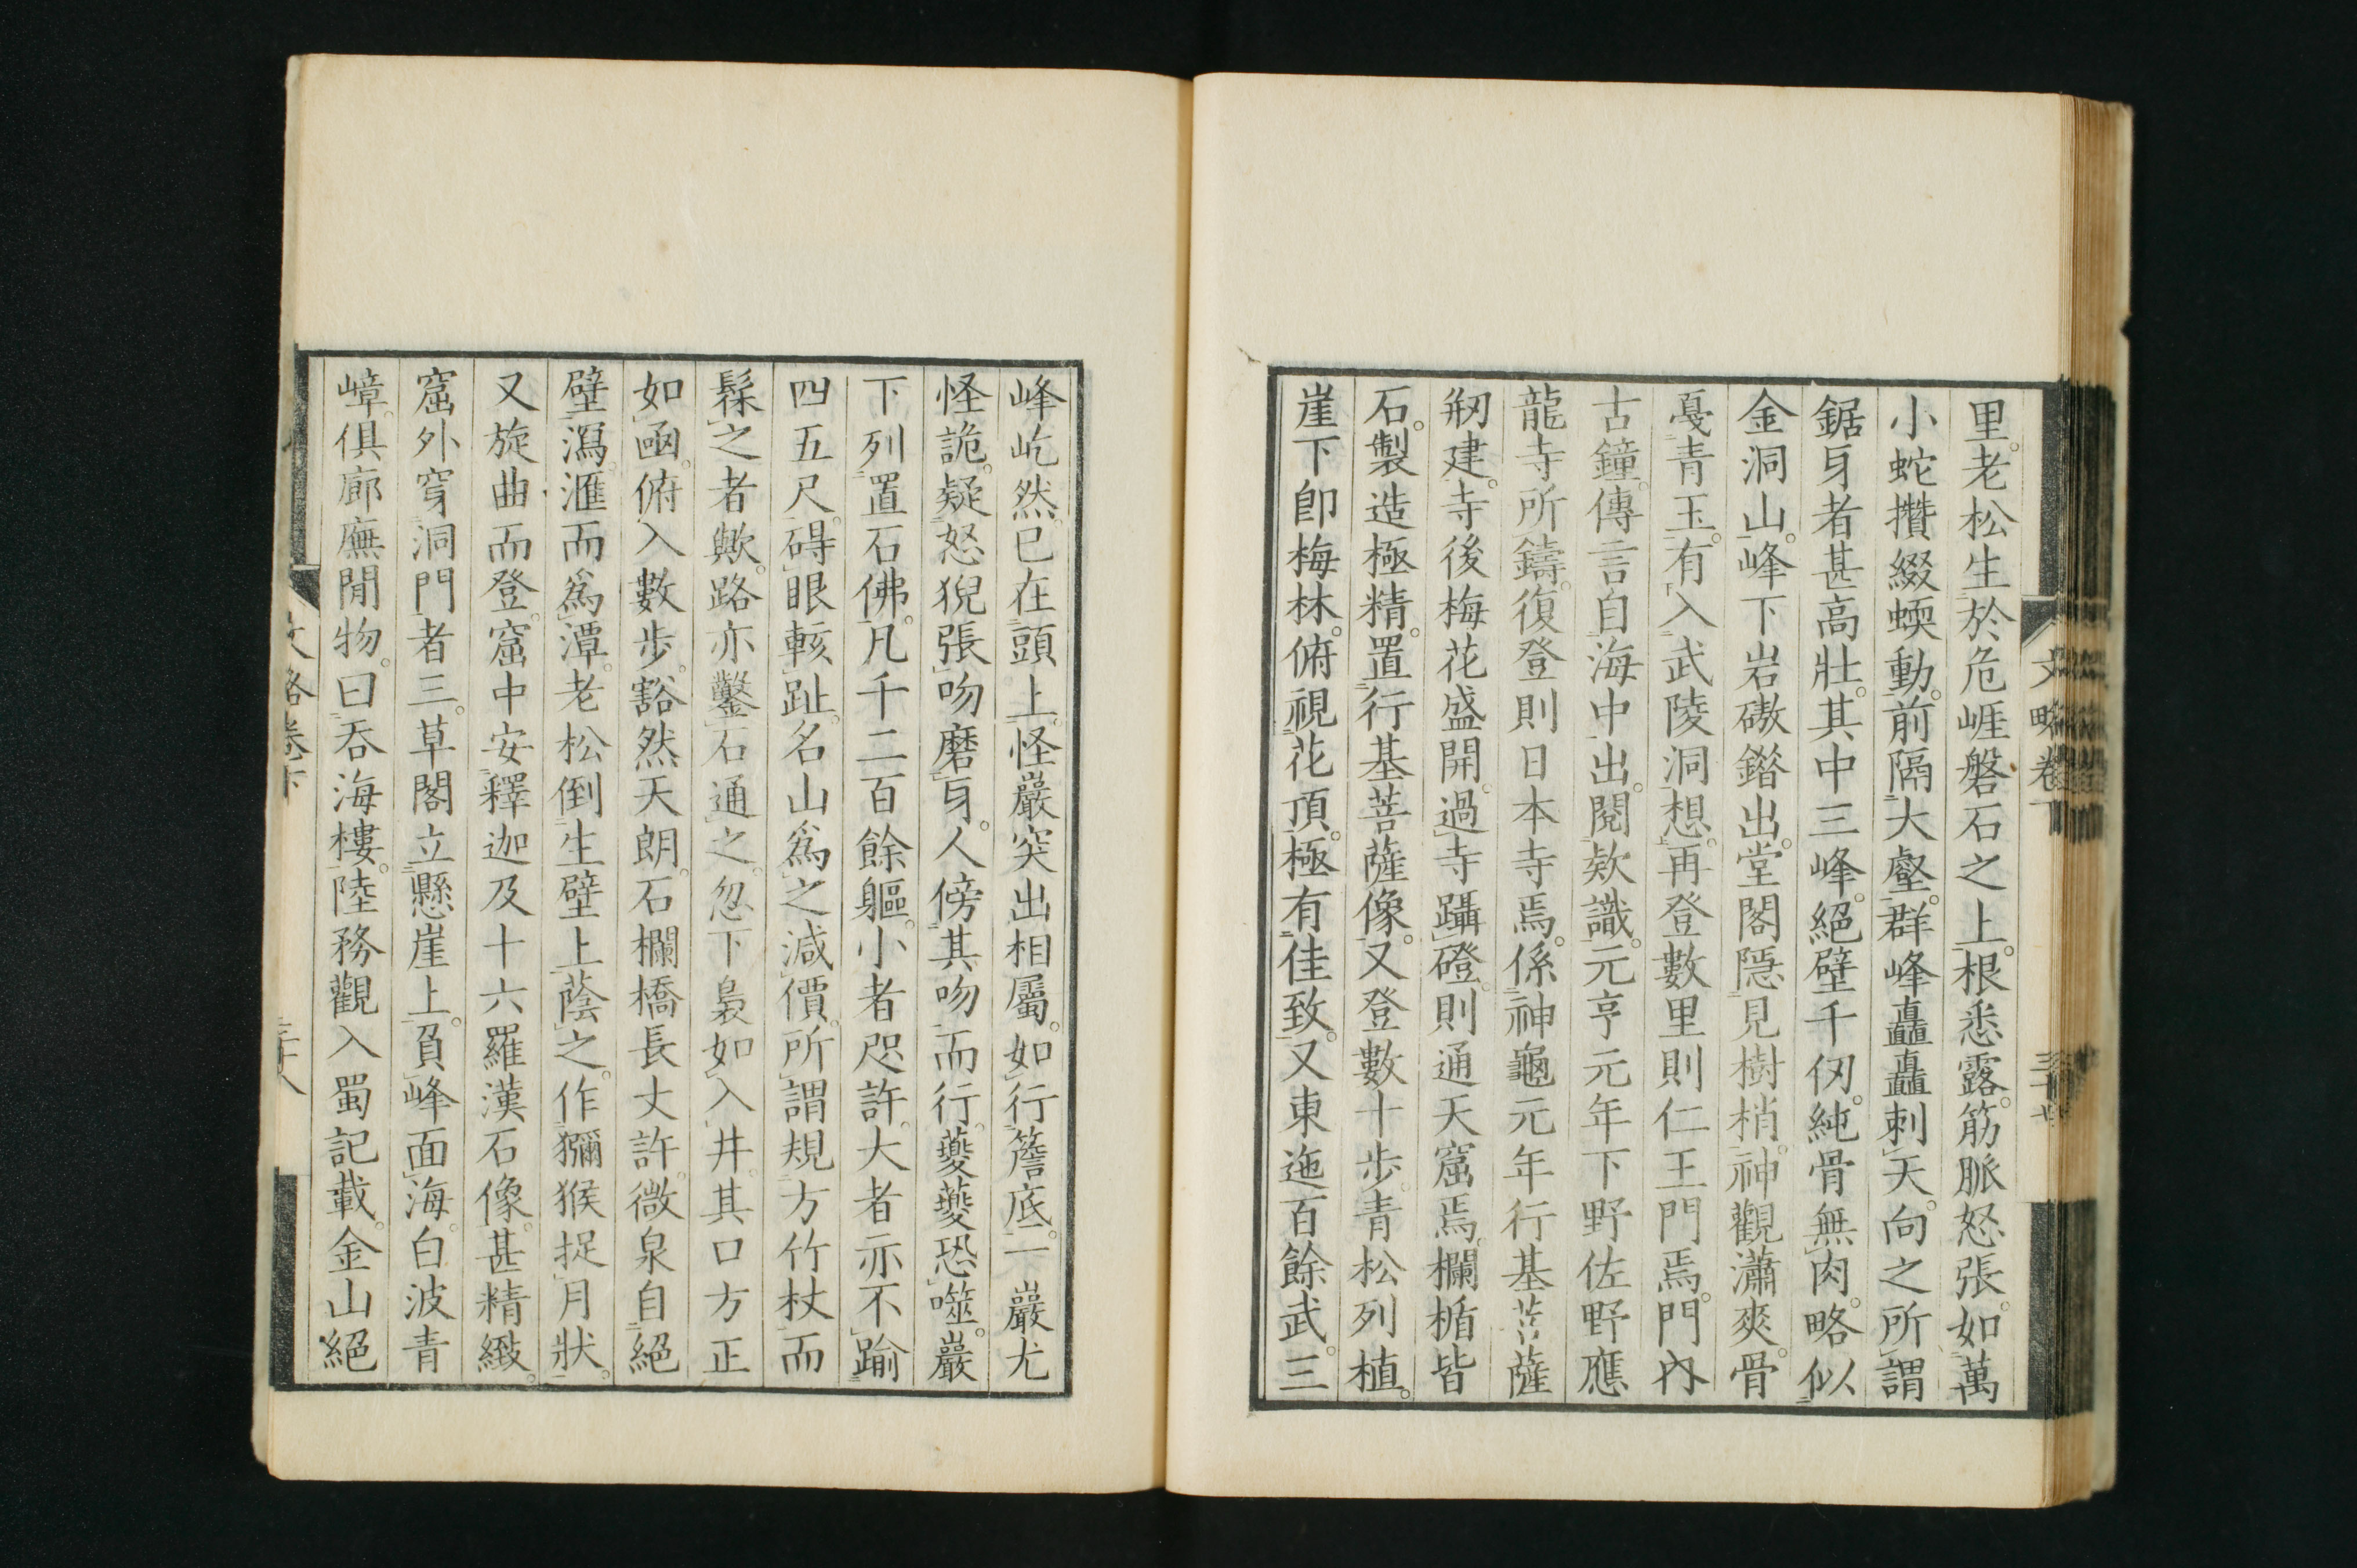 里。老松生於危崕磐石之上。根悉露。筋脈怒張。如萬
小蛇攢綴蝡動。前隔大壑。群峰矗矗刺天。向之所謂
鋸身者甚高壯。其中三峰。絕壁千仭。純骨無肉。略似
金洞山。峰下岩磝鐕出。堂閣隱見樹梢。神觀瀟爽。骨
戞青玉。有入武陵洞想。再登數里則仁王門焉。門內
古鐘。傳言自海中出。閱欵識。元亨元年下野佐野應
龍寺所鑄。復登則日本寺焉。係神龜元年行基菩薩
剏建。寺後梅花盛開。過寺躡磴。則通天窟焉。欄楯皆
石。製造極精。置行基菩薩像。又登數十步。青松列植。
崖下卽梅林。俯視花頂。極有佳致。又東迤百餘武。三
文略卷下
三十七
峰屹然。已在頭上。怪巖突出相屬。如行簷底。一巖尤
怪詭。疑怒猊張吻磨身。人傍其吻而行。夔夔恐噬。巖
下列置石佛。凡千二百餘軀。小者咫許。大者亦不踰
四五尺。碍眼輆趾。名山爲之減價。所謂規方竹杖而
髹之者歟。路亦鑿石通之。忽下裊如入井。其口方正
如凾。俯入數步。豁然天朗。石欄橋長丈許。微泉自絕
壁瀉。滙而爲潭。老松倒生壁上。蔭之。作獼猴捉月狀。
又旋曲而登。窟中安釋迦及十六羅漢石像。甚精緻。
窟外穿洞門者三。草閣立懸崖上。負峰面海。白波青
嶂。俱廊廡閒物。曰呑海樓。陸務觀入蜀記載。金山絕
文略卷下
三十八